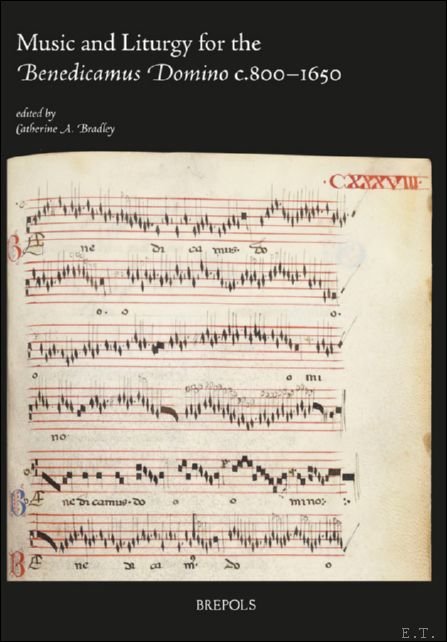 Music and Liturgy for the
Benedicamus Domino c.800–1650
edited by
Catherine A. Bradley
·CXXXVIII·
BE ne di ca mus· do
o· o· o·
o o mi
no·
BE ne di camus·do o o mino:
BE ne di ca m⁹· do o
BREPOLS
E.T.